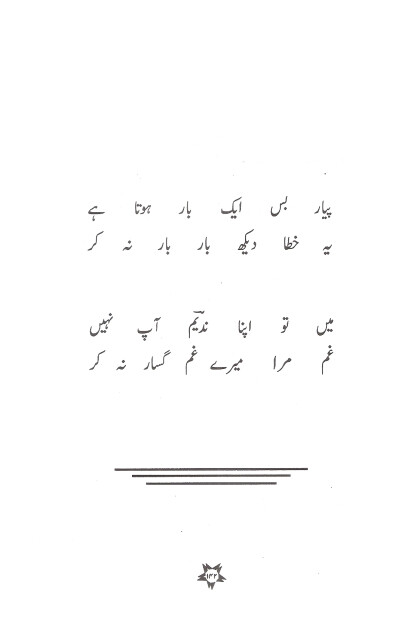 پیار بس ایک بار ہوتا ہے
یہ خطا دیکھ بار بار نہ کر
میں تو اپنا ندیمؔ آپ نہیں
غم مرا میرے غم گسار نہ کر
۱۳۲